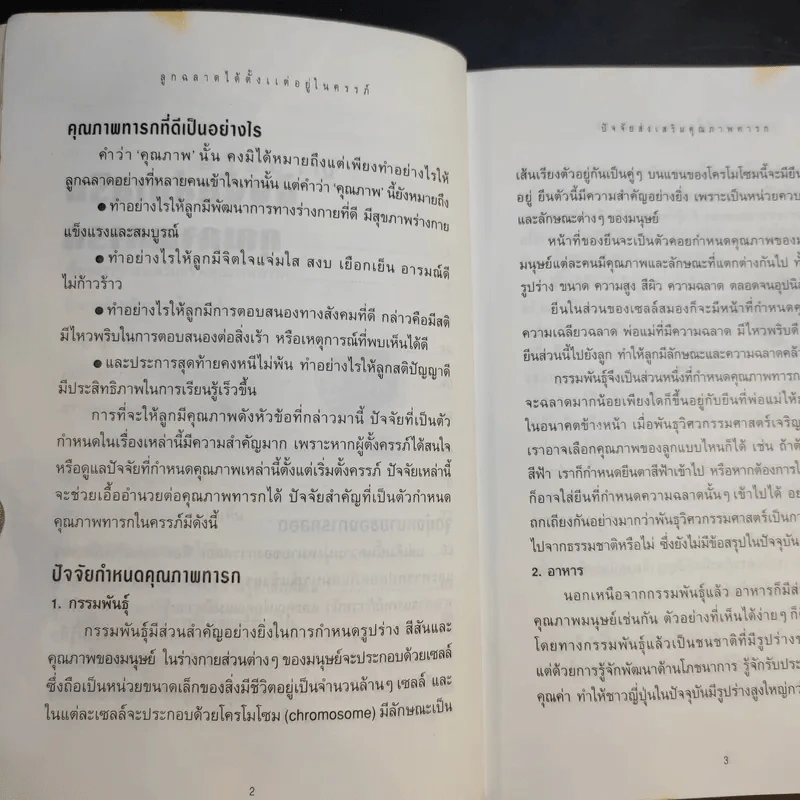 ลูกฉลาดได้ตั้งแต่อยู่ในครรภ์
คุณภาพทารกที่ดีเป็นอย่างไร
คำว่า ‘คุณภาพ’ นั้น คงมิได้หมายถึงแต่เพียงทำอย่างไรให้
ลูกฉลาดอย่างที่หลายคนเข้าใจเท่านั้น แต่คำว่า ‘คุณภาพ’ นี้ยังหมายถึง
● ทำอย่างไรให้ลูกมีพัฒนาการทางร่างกายที่ดี มีสุขภาพร่างกาย
แข็งแรงและสมบูรณ์
● ทำอย่างไรให้ลูกมีจิตใจแจ่มใส สงบ เยือกเย็น อารมณ์ดี
ไม่ก้าวร้าว
● ทำอย่างไรให้ลูกมีการตอบสนองทางสังคมที่ดี กล่าวคือมีสติ
มีไหวพริบในการตอบสนองต่อสิ่งเร้า หรือเหตุการณ์ที่พบเห็นได้ดี
● และประการสุดท้ายคงหนีไม่พ้น ทำอย่างไรให้ลูกสติปัญญาดี
มีประสิทธิภาพในการเรียนรู้เร็วขึ้น
การที่จะให้ลูกมีคุณภาพดังหัวข้อที่กล่าวมานี้ ปัจจัยที่เป็นตัว
กำหนดในเรื่องเหล่านี้มีความสำคัญมาก เพราะหากผู้ตั้งครรภ์ได้สนใจ
หรือดูแลปัจจัยที่กำหนดคุณภาพเหล่านี้ตั้งแต่เริ่มตั้งครรภ์ ปัจจัยเหล่านี้
จะช่วยเอื้ออำนวยต่อคุณภาพทารกได้ ปัจจัยสำคัญที่เป็นตัวกำหนด
คุณภาพทารกในครรภ์มีดังนี้
ปัจจัยกำหนดคุณภาพทารก
1. กรรมพันธุ์
กรรมพันธุ์มีส่วนสำคัญอย่างยิ่งในการกำหนดรูปร่าง สีสันและ
คุณภาพของมนุษย์ ในร่างกายส่วนต่างๆ ของมนุษย์จะประกอบด้วยเซลล์
ซึ่งถือเป็นหน่วยขนาดเล็กของสิ่งมีชีวิตอยู่เป็นจำนวนล้านๆ เซลล์ และ
ในแต่ละเซลล์จะประกอบด้วยโครโมโซม (chromosome) มีลักษณะเป็น
2
ปัจจัยส่งเสริมคุณภาพทารก
เส้นเรียงตัวอยู่กันเป็นคู่ๆ บนแขนของโครโมโซมนี้จะมียีน
อยู่ ยีนตัวนี้มีความสำคัญอย่างยิ่ง เพราะเป็นหน่วยควบ
และลักษณะต่างๆ ของมนุษย์
หน้าที่ของยีนจะเป็นตัวคอยกำหนดคุณภาพของม
มนุษย์แต่ละคนมีคุณภาพและลักษณะที่แตกต่างกันไป ทั้
รูปร่าง ขนาด ความสูง สีผิว ความฉลาด ตลอดจนอุปนิ
ยีนในส่วนของเซลล์สมองก็จะมีหน้าที่กำหนดคุ
ความเฉลียวฉลาด พ่อแม่ที่มีความฉลาด มีไหวพริบดี
ยีนส่วนนี้ไปยังลูก ทำให้ลูกมีลักษณะและความฉลาดคล้
กรรมพันธุ์จึงเป็นส่วนหนึ่งที่กำหนดคุณภาพทารก
จะฉลาดมากน้อยเพียงใดก็ขึ้นอยู่กับยีนที่พ่อแม่ให้ม
ในอนาคตข้างหน้า เมื่อพันธุวิศวกรรมศาสตร์เจริญ
เราอาจเลือกคุณภาพของลูกแบบไหนก็ได้ เช่น ถ้าต้
สีฟ้า เราก็กำหนดยีนตาสีฟ้าเข้าไป หรือหากต้องการใ
ก็อาจใส่ยีนที่กำหนดความฉลาดนั้นๆ เข้าไปได้ อย
ถกเถียงกันอย่างมากว่าพันธุวิศวกรรมศาสตร์เป็นกา
ไปจากธรรมชาติหรือไม่ ซึ่งยังไม่มีข้อสรุปในปัจจุบัน
2. อาหาร
นอกเหนือจากกรรมพันธุ์แล้ว อาหารก็มีส่
คุณภาพมนุษย์เช่นกัน ตัวอย่างที่เห็นได้ง่ายๆ ก็
โดยทางกรรมพันธุ์แล้วเป็นชนชาติที่มีรูปร่าง
แต่ด้วยการรู้จักพัฒนาด้านโภชนาการ รู้จักรับประ
คุณค่า ทำให้ชาวญี่ปุ่นในปัจจุบันมีรูปร่างสูงใหญ่กว่
3